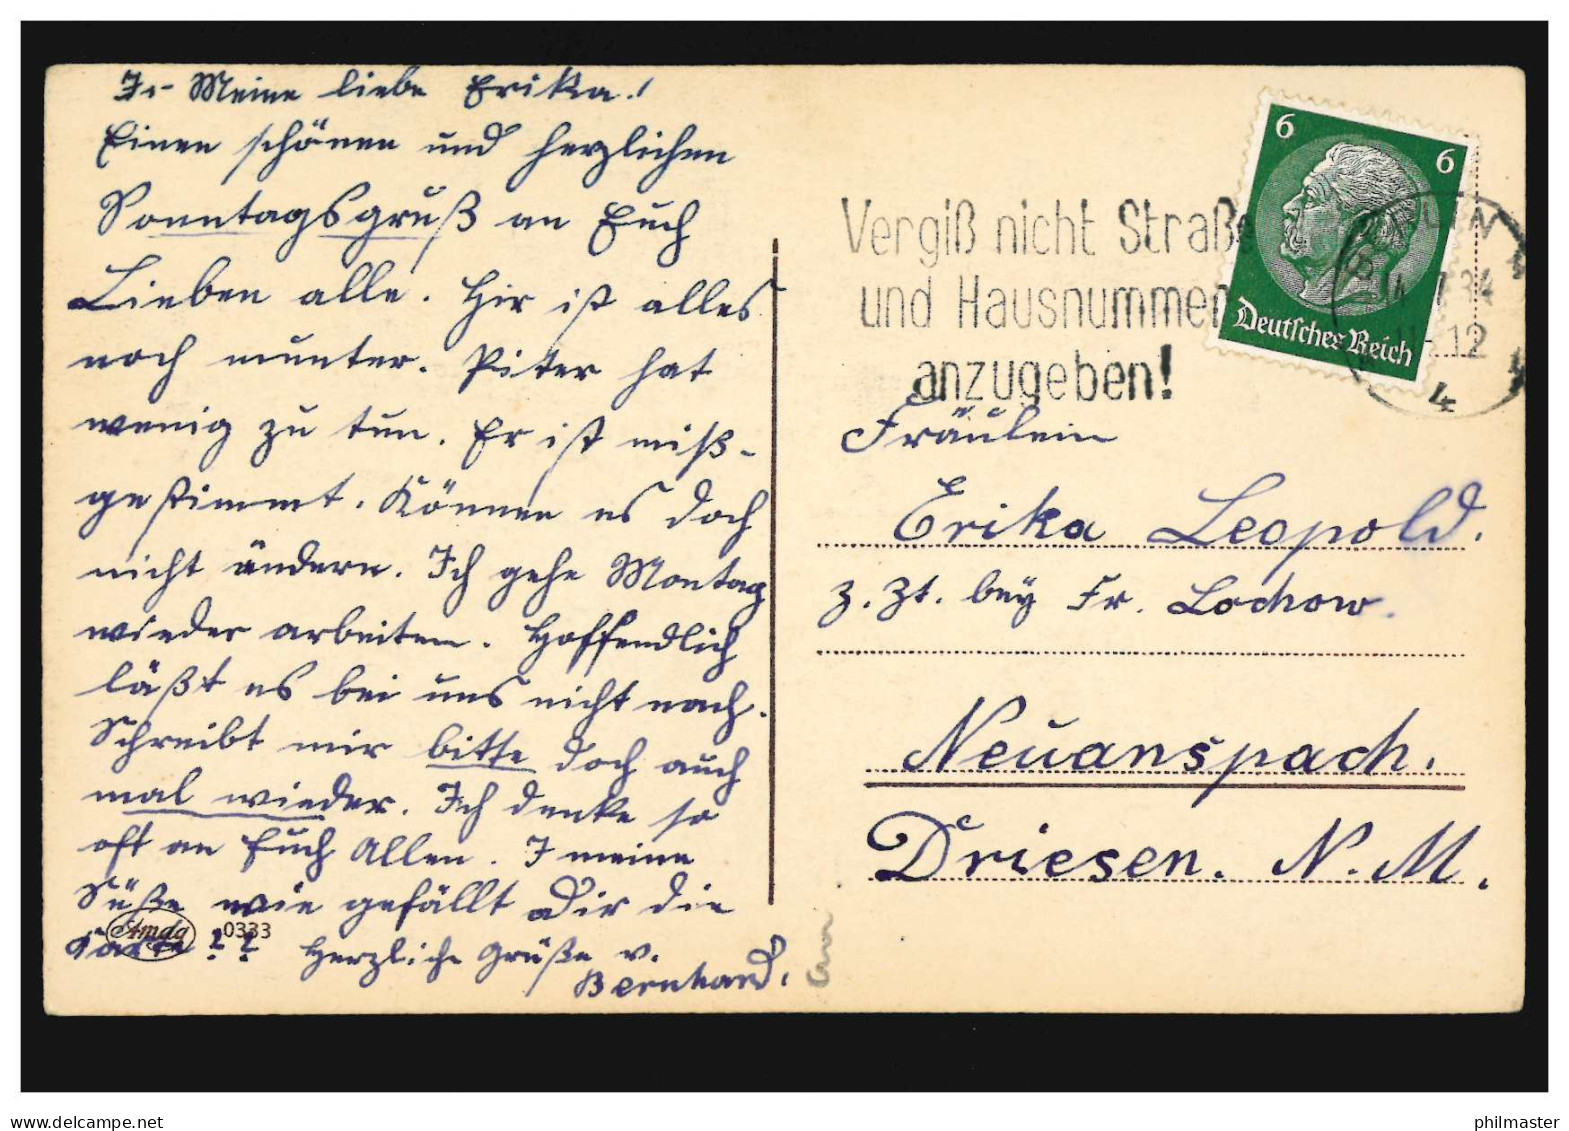 Meine liebe Erika!
Einen schönen und herzlichen
Sonntagsgruß an Euch
Lieben alle. Hir ist alles
noch munter. Piter hat
wenig zu tun. Er ist miß-
gestimmt. Können es doch
nicht ändern. Ich gehe Montag
wieder arbeiten. Hoffendlich
läßt es bei uns nicht nach.
Schreibt mir bitte doch auch
mal wieder. Ich denke so
oft an Euch Allen. I meine
Süße wie gefällt Dir die
Karte ? ?
Herzliche Grüße v.
Bernhard.
Amag 0333
Vergiß nicht Straße
und Hausnummer
anzugeben!
6 6
Deutsches Reich
BERLIN
14.7.34
11-12
4
Fräulein
Erika Leopold.
z. Zt. bey Fr. Lochow.
Neuanspach.
Driesen. N. M.
www.delcampe.net
philmaster